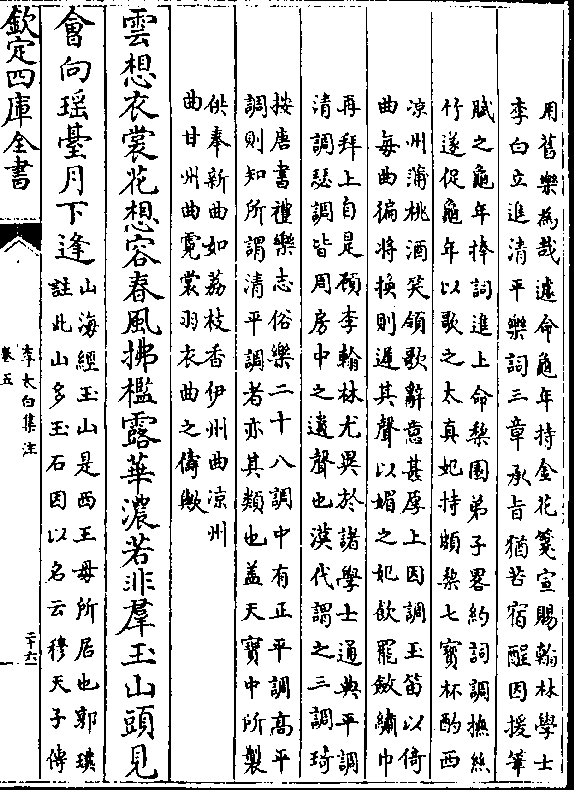 用舊樂為哉遽命龜年持金花箋宣賜翰林學士
李白立進清平樂詞三章承旨猶若宿酲因援筆
賦之龜年捧詞進上命棃園弟子畧約詞調撫絲
竹遂促龜年以歌之太真妃持頗棃七寶杯酌西
凉州蒲桃酒笑領歌辭意甚厚上因調玉笛以倚
曲每曲徧將換則遲其聲以媚之妃飲罷斂繡巾
再拜上自是顧李翰林尤異於諸學士通典平調
清調瑟調皆周房中之遺聲也漢代謂之三調琦
按唐書禮樂志俗樂二十八調中有正平調高平
調則知所謂清平調者亦其類也蓋天寶中所製
供奉新曲如荔枝香伊州曲凉州
曲甘州曲霓裳羽衣曲之儔歟
雲想衣裳花想容春風拂檻露華濃若非羣玉山頭見
會向瑶臺月下逢
山海經玉山是西王母所居也郭璞
註此山多玉石因以名云穆天子傳
欽定四庫全書
李太白集注
卷五
二十六